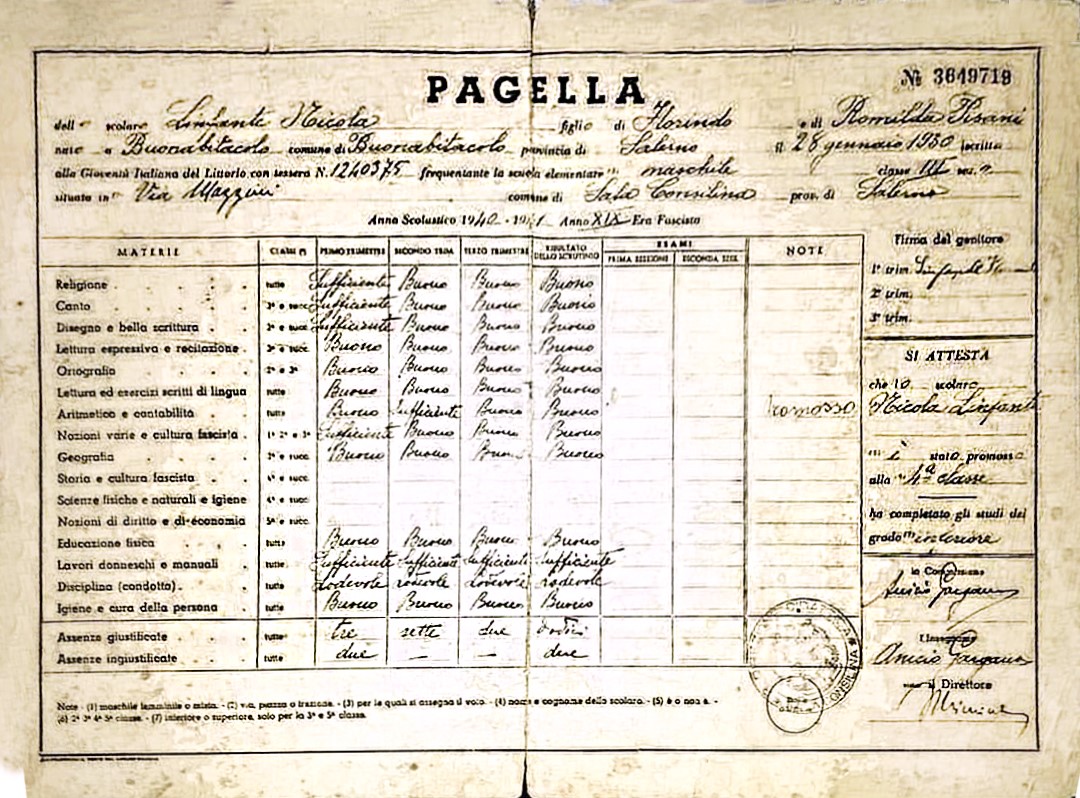 № 3649719
PAGELLA
dello scolaro Linfante Nicola figlio di Florindo e di Romilda Pisani
nato a Buonabitacolo comune di Buonabitacolo provincia di Salerno il 28 gennaio 1930 iscritto
alla Gioventù Italiana del Littorio con tessera N. 1240375 frequentante la scuola elementare (1) maschile classe III sez.
situata in (2) Via Mazzini comune di Sala Consilina prov. di Salerno
Anno Scolastico 1940 - 1941 Anno XIX Era Fascista
MATERIE CLASSI (3) PRIMO TRIMESTRE SECONDO TRIM. TERZO TRIMESTRE RISULTATO DELLO SCRUTINIO ESAMI PRIMA SESSIONE SECONDA SESS. NOTE
Religione tutte Sufficiente Buono Buono Buono
Canto 3ª e succ. Sufficiente Buono Buono Buono
Disegno e bella scrittura 2ª e succ. Sufficiente Buono Buono Buono
Lettura espressiva e recitazione 3ª e succ. Buono Buono Buono Buono
Ortografia 2ª e 3ª Buono Buono Buono Buono
Lettura ed esercizi scritti di lingua tutte Buono Buono Buono Buono
Aritmetica e contabilità tutte Buono Sufficiente Buono Buono Promosso
Nozioni varie e cultura fascista 1ª 2ª e 3ª Sufficiente Buono Buono Buono
Geografia 3ª e succ. Buono Buono Buono Buono
Storia e cultura fascista 4ª e succ.
Scienze fisiche e naturali e igiene 4ª e succ.
Nozioni di diritto e di economia 5ª e succ.
Educazione fisica tutte Buono Buono Buono Buono
Lavori donneschi e manuali tutte Sufficiente Sufficiente Sufficiente Sufficiente
Disciplina (condotta) tutte Lodevole Lodevole Lodevole Lodevole
Igiene e cura della persona tutte Buono Buono Buono Buono
Assenze giustificate tutte tre sette due dodici
Assenze ingiustificate tutte due — — due
Note - (1) maschile femminile o mista. - (2) via, piazza o frazione. - (3) per le quali si assegna il voto. - (4) nome e cognome dello scolaro. - (5) è o non è. -
(6) 2ª 3ª 4ª 5ª classe. - (7) inferiore o superiore, solo per la 3ª e 5ª classe.
Firma del genitore
1º trim. Linfante
2º trim.
3º trim.
SI ATTESTA
che lo scolaro
Nicola Linfante
(5) è stato promosso
alla (6) 4ª classe
ha completato gli studi del
grado (7) inferiore
la Commissione
Anicio Gargano
L'Insegnante
Anicio Gargano
il Direttore